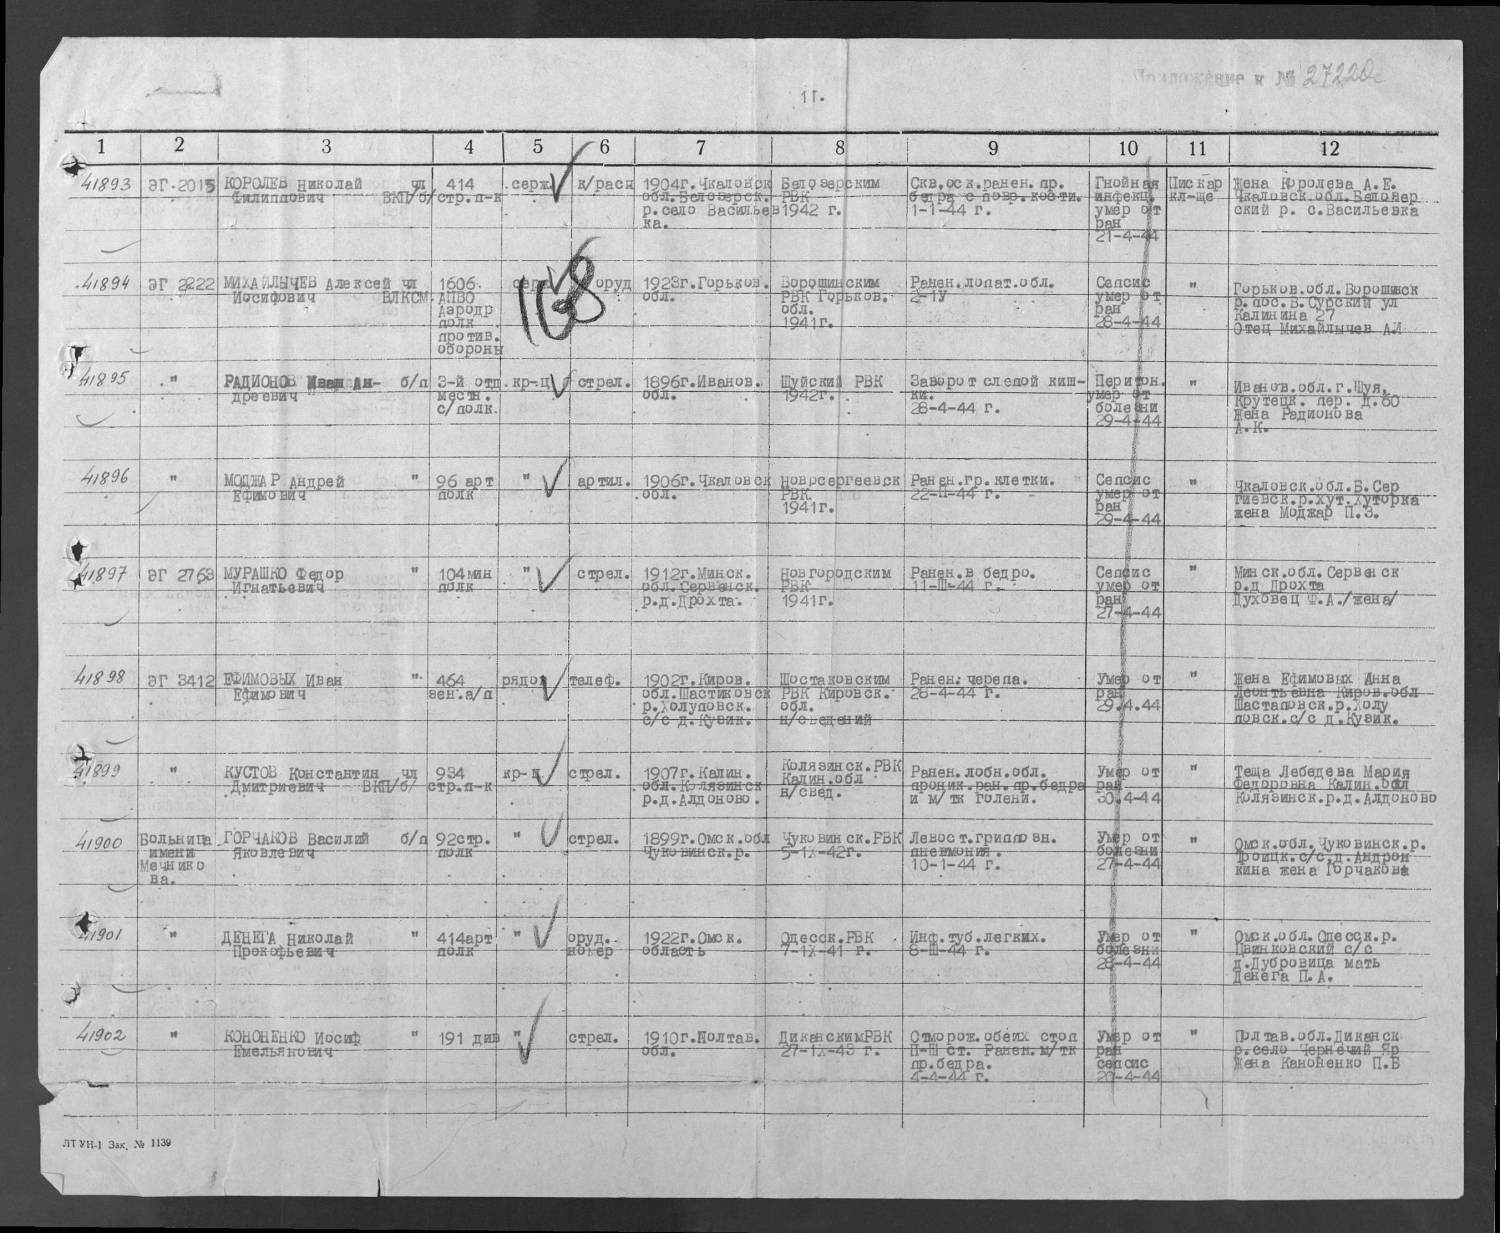 Приложение к № 27220с
11.
1 2 3 4 5 6 7 8 9 10 11 12
41893 ЭГ.2015 КОРОЛЕВ Николай чл 414 серж к/расч 1904г.Чкаловск Белозерским Скв.оск.ранен.пр. Гнойная Пискар Жена Королева А.Е.
Филиппович ВКП/б/ стр.п-к обл.Белозерск. РВК бедра с повр.кости. инфекц. кл-ще Чкаловск.обл.Белозер
р.село Васильев 1942 г. 1-1-44 г. умер от ский р. с.Васильевка
ка. ран
21-4-44
41894 ЭГ 2222 МИХАЙЛЫЧЕВ Алексей чл 1606 серж оруд 1923г.Горьков. Ворошинским Ранен.лопат.обл. Сепсис " Горьков.обл.Ворошинск
Иосифович ВЛКСМ АПВО обл. РВК Горьков. 2-1У умер от р.пос.В.Сурский ул
Аэродр обл. ран Калинина 27
полк 1941г. 28-4-44 Отец Михайлычев А.И
против.
обороны
168
41895 " РАДИОНОВ Иван Ан- б/п 3-й отд. кр-ц стрел. 1896г.Иванов. Шуйский РВК Заворот слепой киш- Перитон. " Иванов.обл.г.Шуя,
дреевич местн. обл. 1942г. ки. умер от Крутецк. пер. д.80
с/полк. 28-4-44 г. болезни Жена Радионова
29-4-44 А.К.
41896 " МОДЖАР Андрей " 96 арт " артил. 1906г.Чкаловск Новосергеевск Ранен.гр.клетки. Сепсис " Чкаловск.обл.Б.Сер
Ефимович полк обл. РВК 22-П-44 г. умер от гиевск.р.хут.Хуторка
1941г. ран жена Моджар П.З.
29-4-44
41897 ЭГ 2763 МУРАШКО Федор " 104мин " стрел. 1912г.Минск. Новгородским Ранен.в бедро. Сепсис " Минск.обл.Сервенск
Игнатьевич полк обл.Сервенск. РВК 11-Ш-44 г. умер от р.д Дрохта
р.д.Дрохта. 1941г. ран Духовец Ф.А./жена/
27-4-44
41898 ЭГ 3412 ЕФИМОВЫХ Иван " 464 рядов телеф. 1902г.Киров. Шостаковским Ранен.черепа. Умер от " Жена Ефимовых Анна
Ефимович зен.а/п обл.Шастиковск РВК Кировск. 28-4-44 г. ран Леонтьевна Киров.обл
р.Холуповск. обл. 29.4.44 Шастаповск.р.Холу
с/с д.Кузик. н/сведений повск.с/с д.Кузик.
41899 " КУСТОВ Константин чл 934 кр-ц стрел. 1907г.Калин. Колязинск.РВК Ранен.лобн.обл. Умер от " Теща Лебедева Мария
Дмитриевич ВКП/б/ стр.п-к обл.Колязинск Калин.обл проник.ран.пр.бедра ран Федоровна Калин.обл
р.д.Алдоново. н/свед. и м/тк голени. 30.4-44 Колязинск.р.д.Алдоново
41900 Больница ГОРЧАКОВ Василий б/п 92стр. " стрел. 1899г.Омск.обл Чуковинск.РВК Левост.гриппозн. Умер от " Омск.обл.Чуковинск.р.
имени Яковлевич полк Чуковинск.р. 5-1Х-42г. пневмония. болезни Троицк.с/с.д.Андрон
Мечнико 10-1-44 г. 27-4-44 кина жена Горчакова
ва.
41901 " ДЕНЕГА Николай " 414арт " оруд. 1922г.Омск. Одесск.РВК Инф.туб.легких. Умер от " Омск.обл.Одесск.р.
Прокофьевич полк номер область 7-1Х-41 г. 8-Ш-44 г. болезни Цвинковский с/с
28-4-44 д.Дубровица мать
Денега П.А.
41902 " КОНОНЕНКО Иосиф " 191 див " стрел. 1910г.Полтав. ДиканскимРВК Отморож.обеих стоп Умер от " Полтав.обл.Диканск
Емельянович обл. 27-1Х-43 г. П-Ш ст. Ранен.м/тк ран р.село Чернечий Яр
пр.бедра. сепсис Жена Каноненко П.Б
4-4-44 г. 29-4-44
ЛТ УН-1 Зак. № 1139